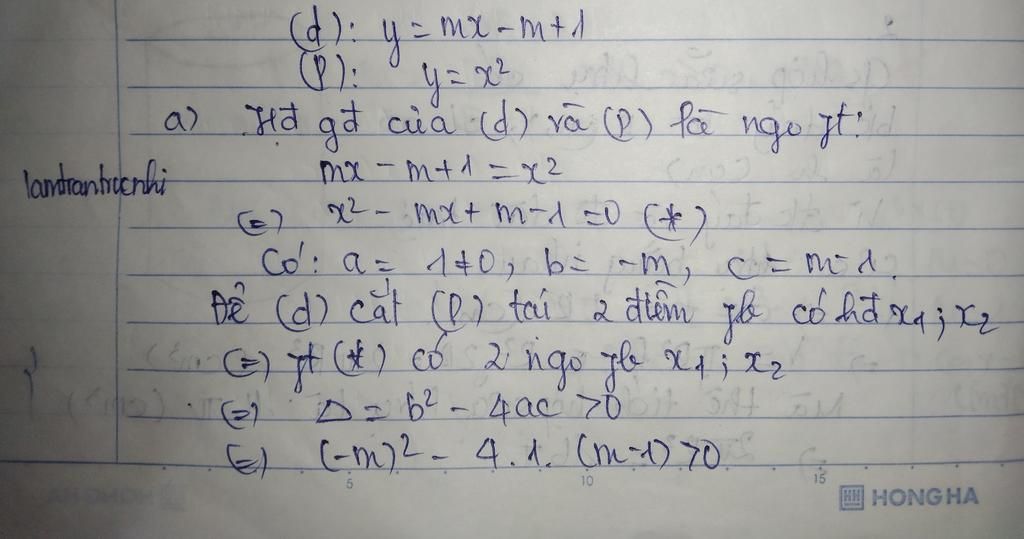 (d): y = mx - m + 1
(P): y = x²
a) Hđ gđ của (d) và (P) là ngo pt:
mx - m + 1 = x²
lamtrantrucnhi
(=) x² - mx + m - 1 = 0 (*)
Có: a = 1 ≠ 0, b = -m, c = m - 1.
Để (d) cắt (P) tại 2 điểm pb có hđ x₁; x₂
(=) pt (*) có 2 ngo pb x₁; x₂
(=) Δ = b² - 4ac > 0
(=) (-m)² - 4. 1. (m - 1) > 0
5 10 15
HONG HA